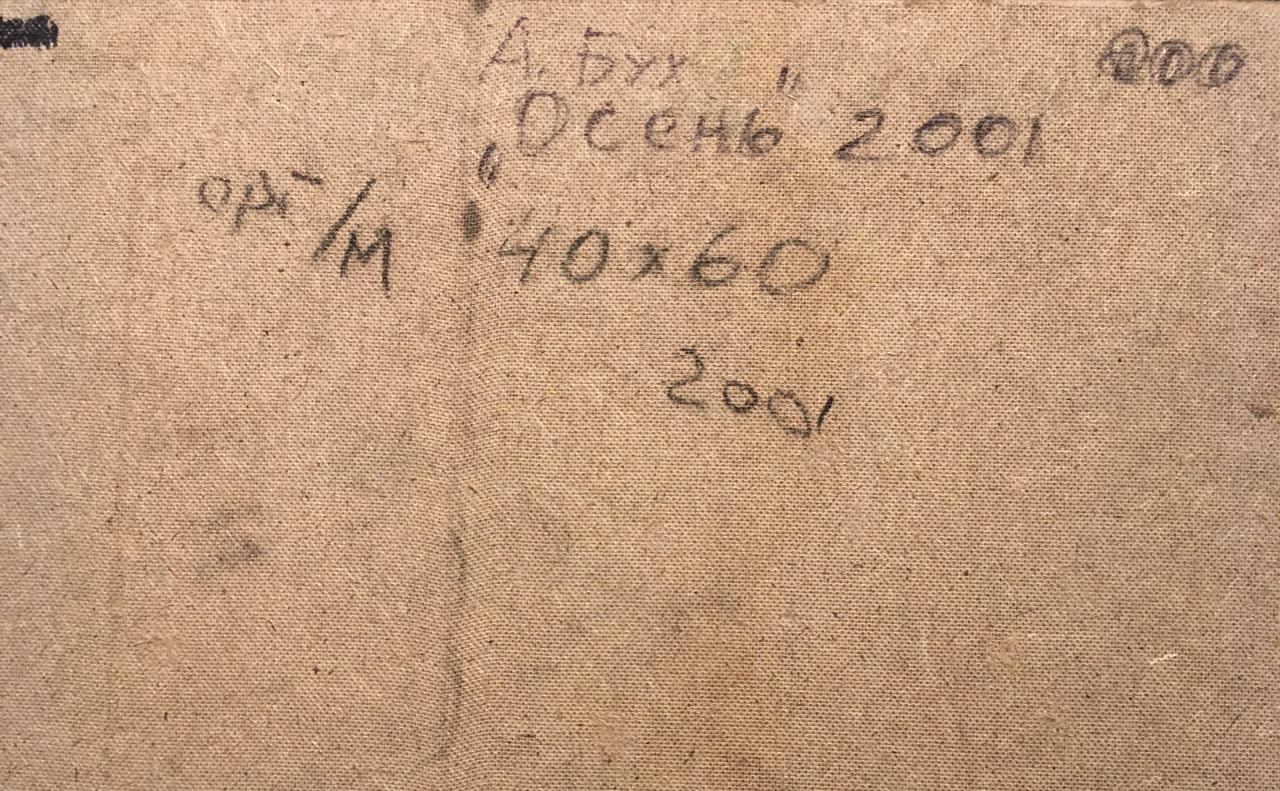 А. Бух
„Осень" 2001
орг/м 40х60
2001